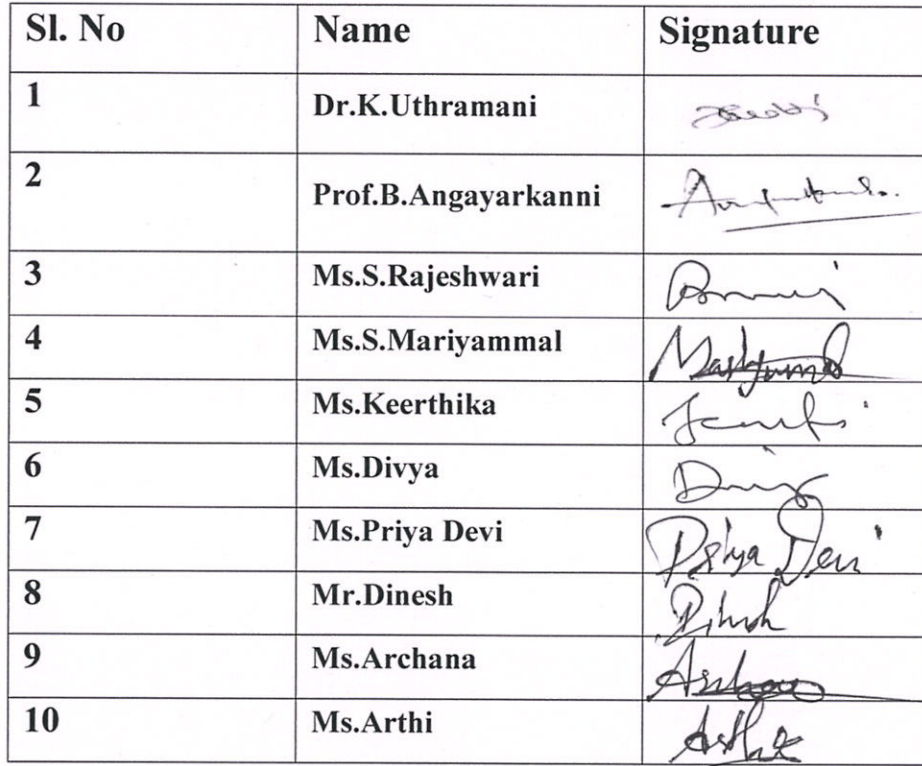 Sl. No Name Signature
1 Dr.K.Uthramani
2 Prof.B.Angayarkanni
3 Ms.S.Rajeshwari
4 Ms.S.Mariyammal
5 Ms.Keerthika
6 Ms.Divya
7 Ms.Priya Devi Priya Devi
8 Mr.Dinesh
9 Ms.Archana
10 Ms.Arthi